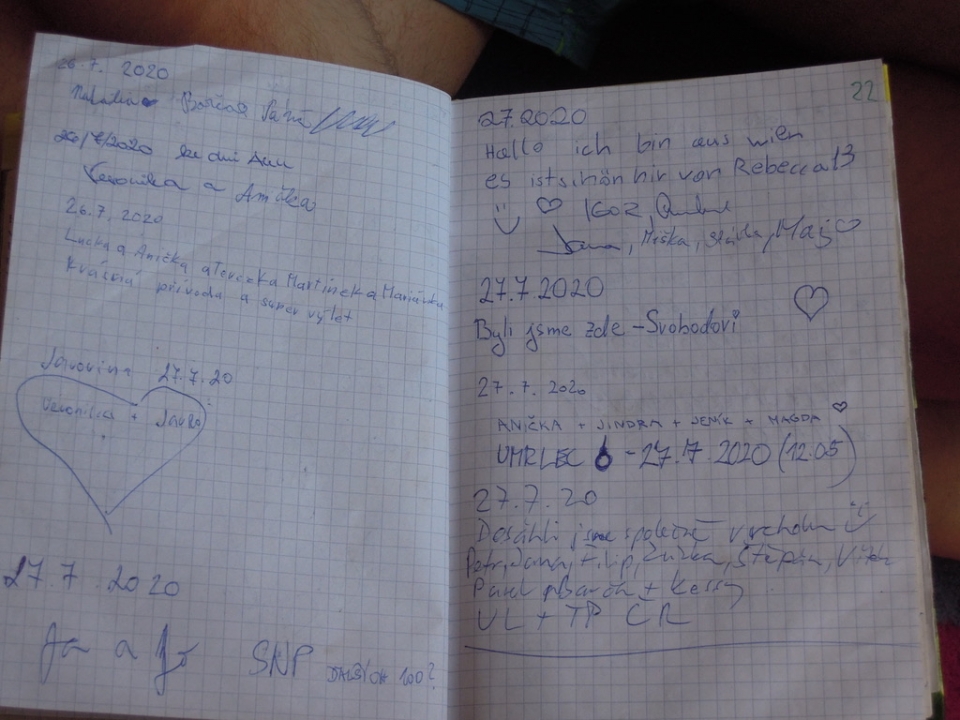 26.7. 2020
Natália
26/7/2020
Veronika a Anička
26.7.2020
Lucka a Anička a Terezka Martínek a
Krásná příroda a super výlet
Javorina 27.7.20
Veronika +
27.7.2020
Ja a
SNP DALŠÍCH 100?
22
27.2020
Hallo ich bin aus wien
es ist schön hir von Rebecca 13
IGOR
Jana, Miška,
27.7.2020
Byli jsme zde - Svobodovi
27.7.2020
ANIČKA + JINDRA + JENÍK + MAGDA
UHRLEC - 27.17.2020 (12.05)
27.7.20
Dosáhli jsme společně vrcholu
Petr, Jana, Filip, Zuzka, Štěpán,
Pavel + Kessy
UL + TP CR